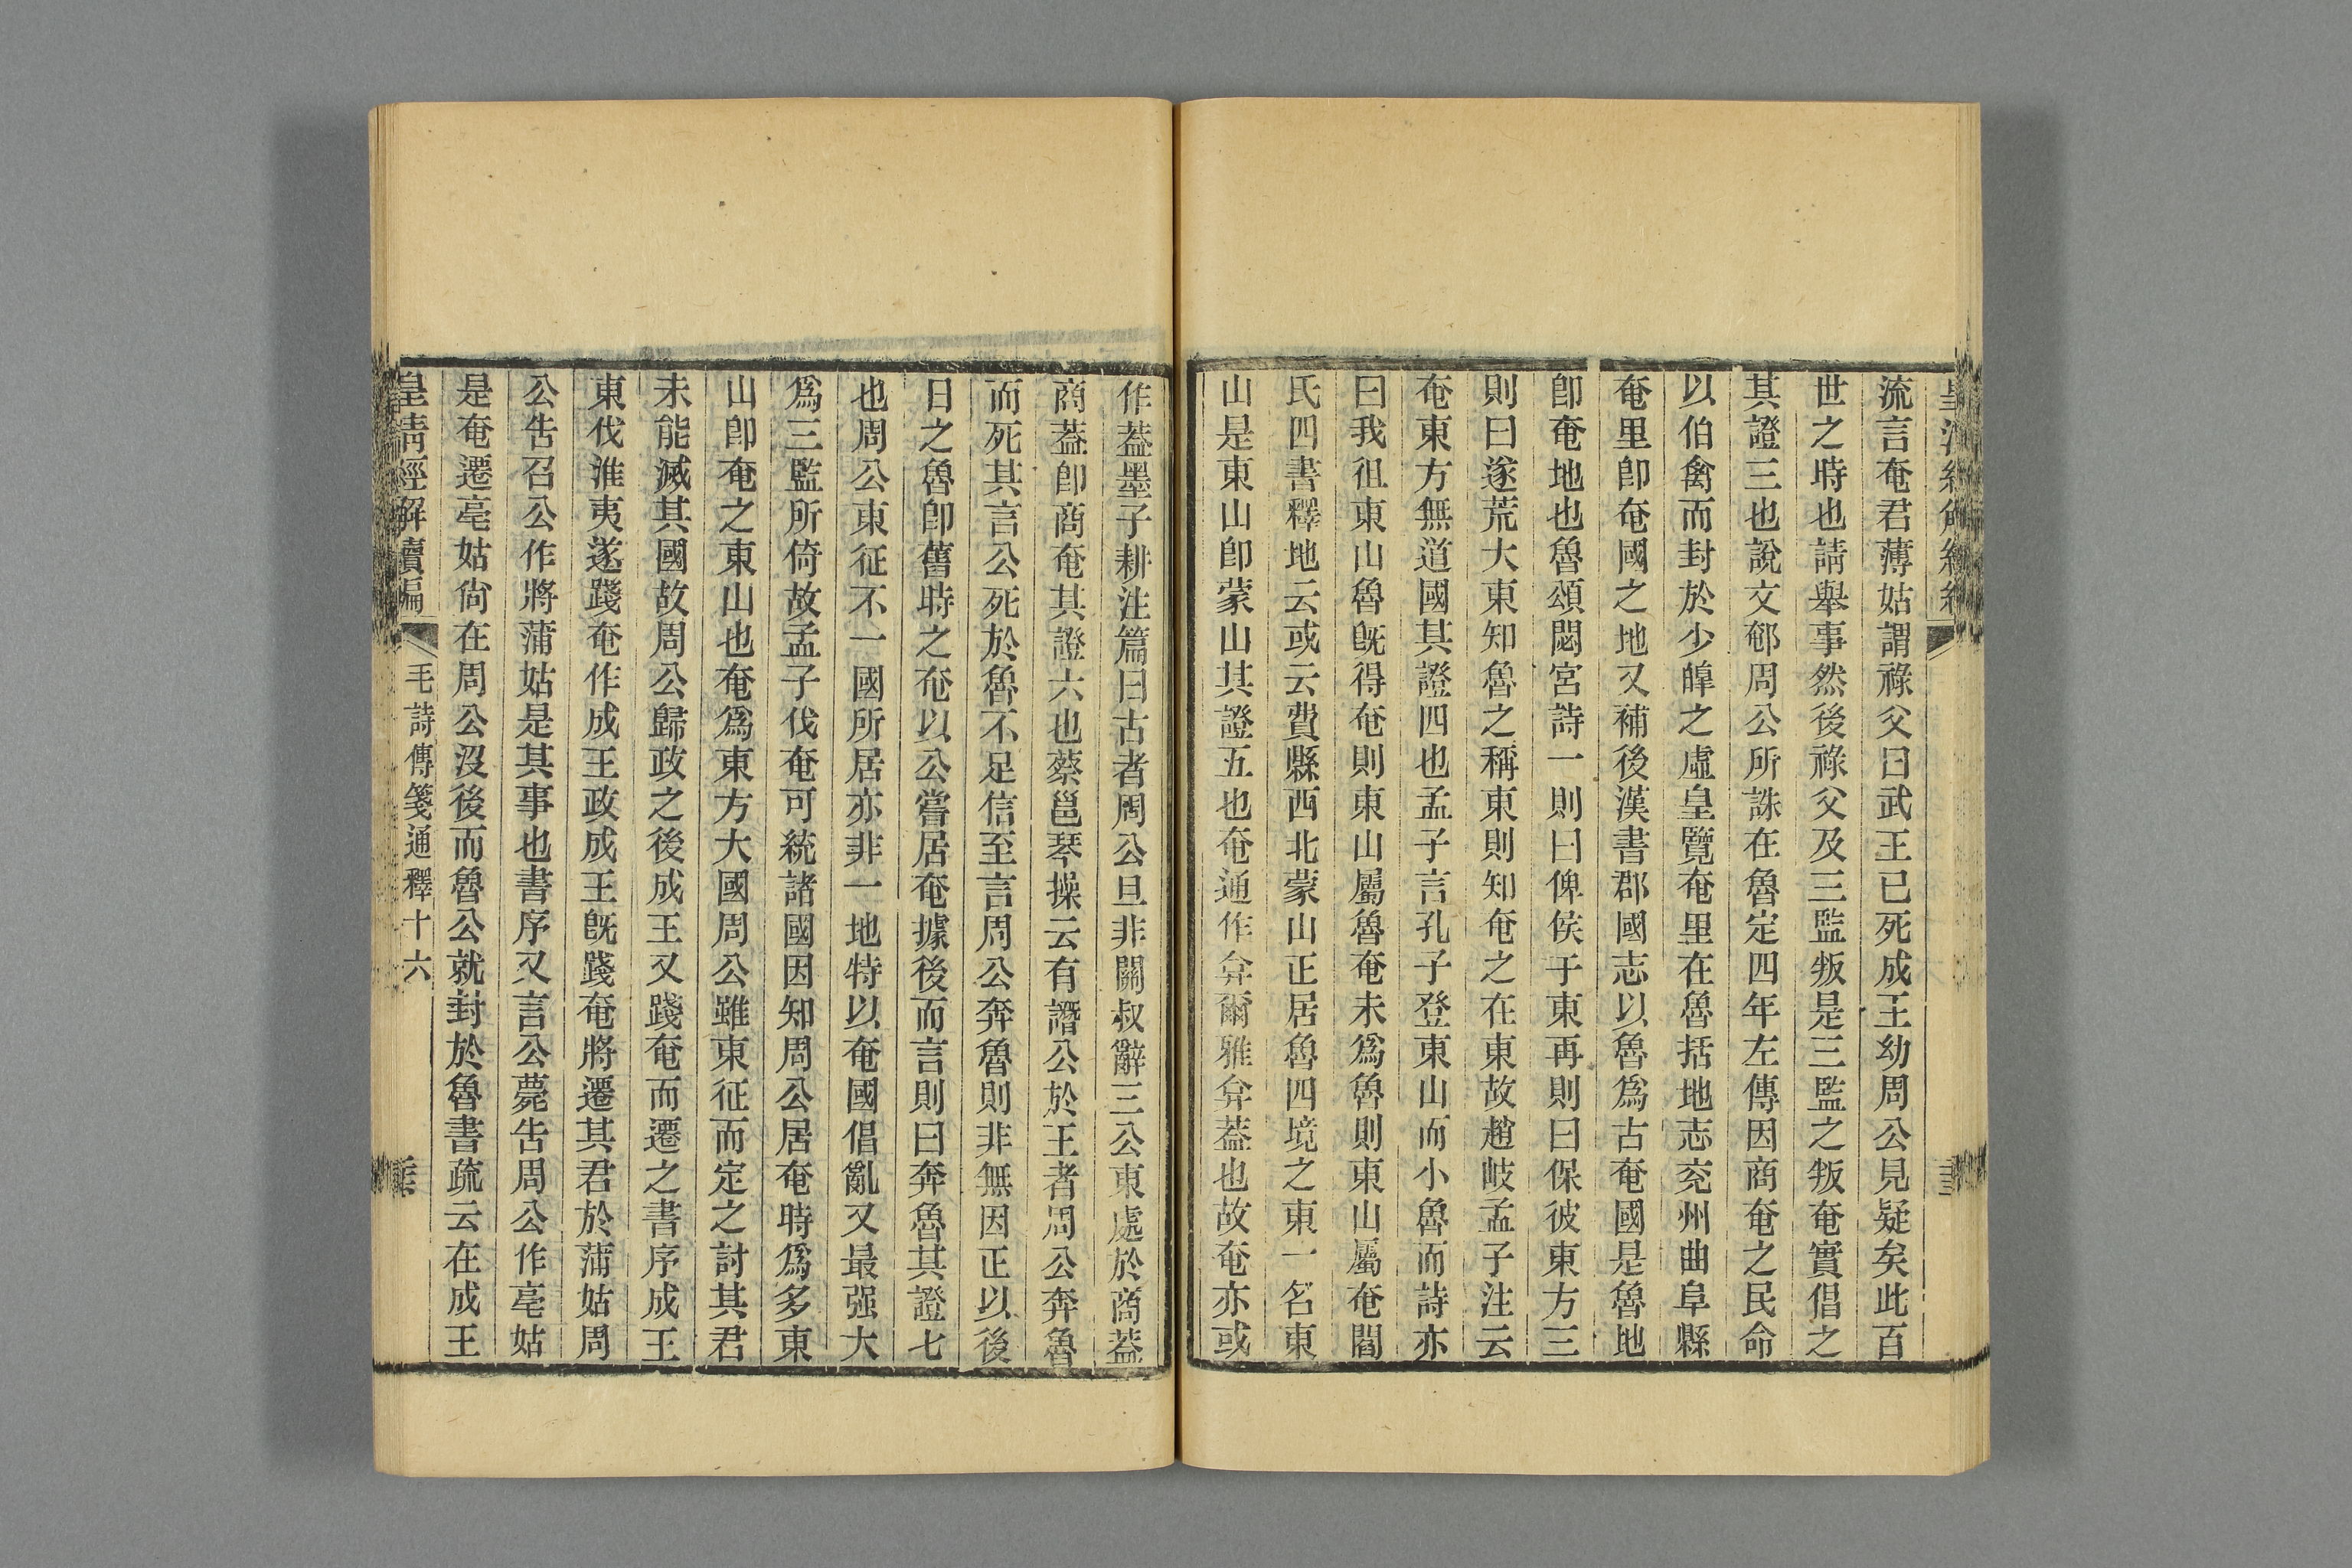 流言奄君薄姑謂祿父曰武王已死成王幼周公見疑矣此百
世之時也請舉事然後祿父及三監叛是三監之叛奄實倡之
其證三也說文䣍周公所誅在魯定四年左傳因商奄之民命
以伯禽而封於少皡之虛皇覽奄里在魯括地志兖州曲阜縣
奄里卽奄國之地又補後漢書郡國志以魯爲古奄國是魯地
卽奄地也魯頌閟宮詩一則曰俾侯于東再則曰保彼東方三
則曰遂荒大東知魯之稱東則知奄之在東故趙岐孟子注云
奄東方無道國其證四也孟子言孔子登東山而小魯而詩亦
曰我徂東山魯旣得奄則東山屬魯奄未爲魯則東山屬奄閻
氏四書釋地云或云費縣西北蒙山正居魯四境之東一名東
山是東山卽蒙山其證五也奄通作弇爾雅弇葢也故奄亦或
作葢墨子耕注篇曰古者周公旦非關叔辭三公東處於商葢
商葢卽商奄其證六也蔡邕琴操云有譖公於王者周公奔魯
而死其言公死於魯不足信至言周公奔魯則非無因正以後
日之魯卽舊時之奄以公嘗居奄據後而言則曰奔魯其證七
也周公東征不一國所居亦非一地特以奄國倡亂又最强大
爲三監所倚故孟子伐奄可統諸國因知周公居奄時爲多東
山卽奄之東山也奄爲東方大國周公雖東征而定之討其君
未能滅其國故周公歸政之後成王又踐奄而遷之書序成王
東伐淮夷遂踐奄作成王政成王旣踐奄將遷其君於蒲姑周
公告召公作將蒲姑是其事也書序又言公薨告周公作亳姑
是奄遷亳姑尙在周公沒後而魯公就封於魯書疏云在成王
皇清經解續編
毛詩傳箋通釋十六